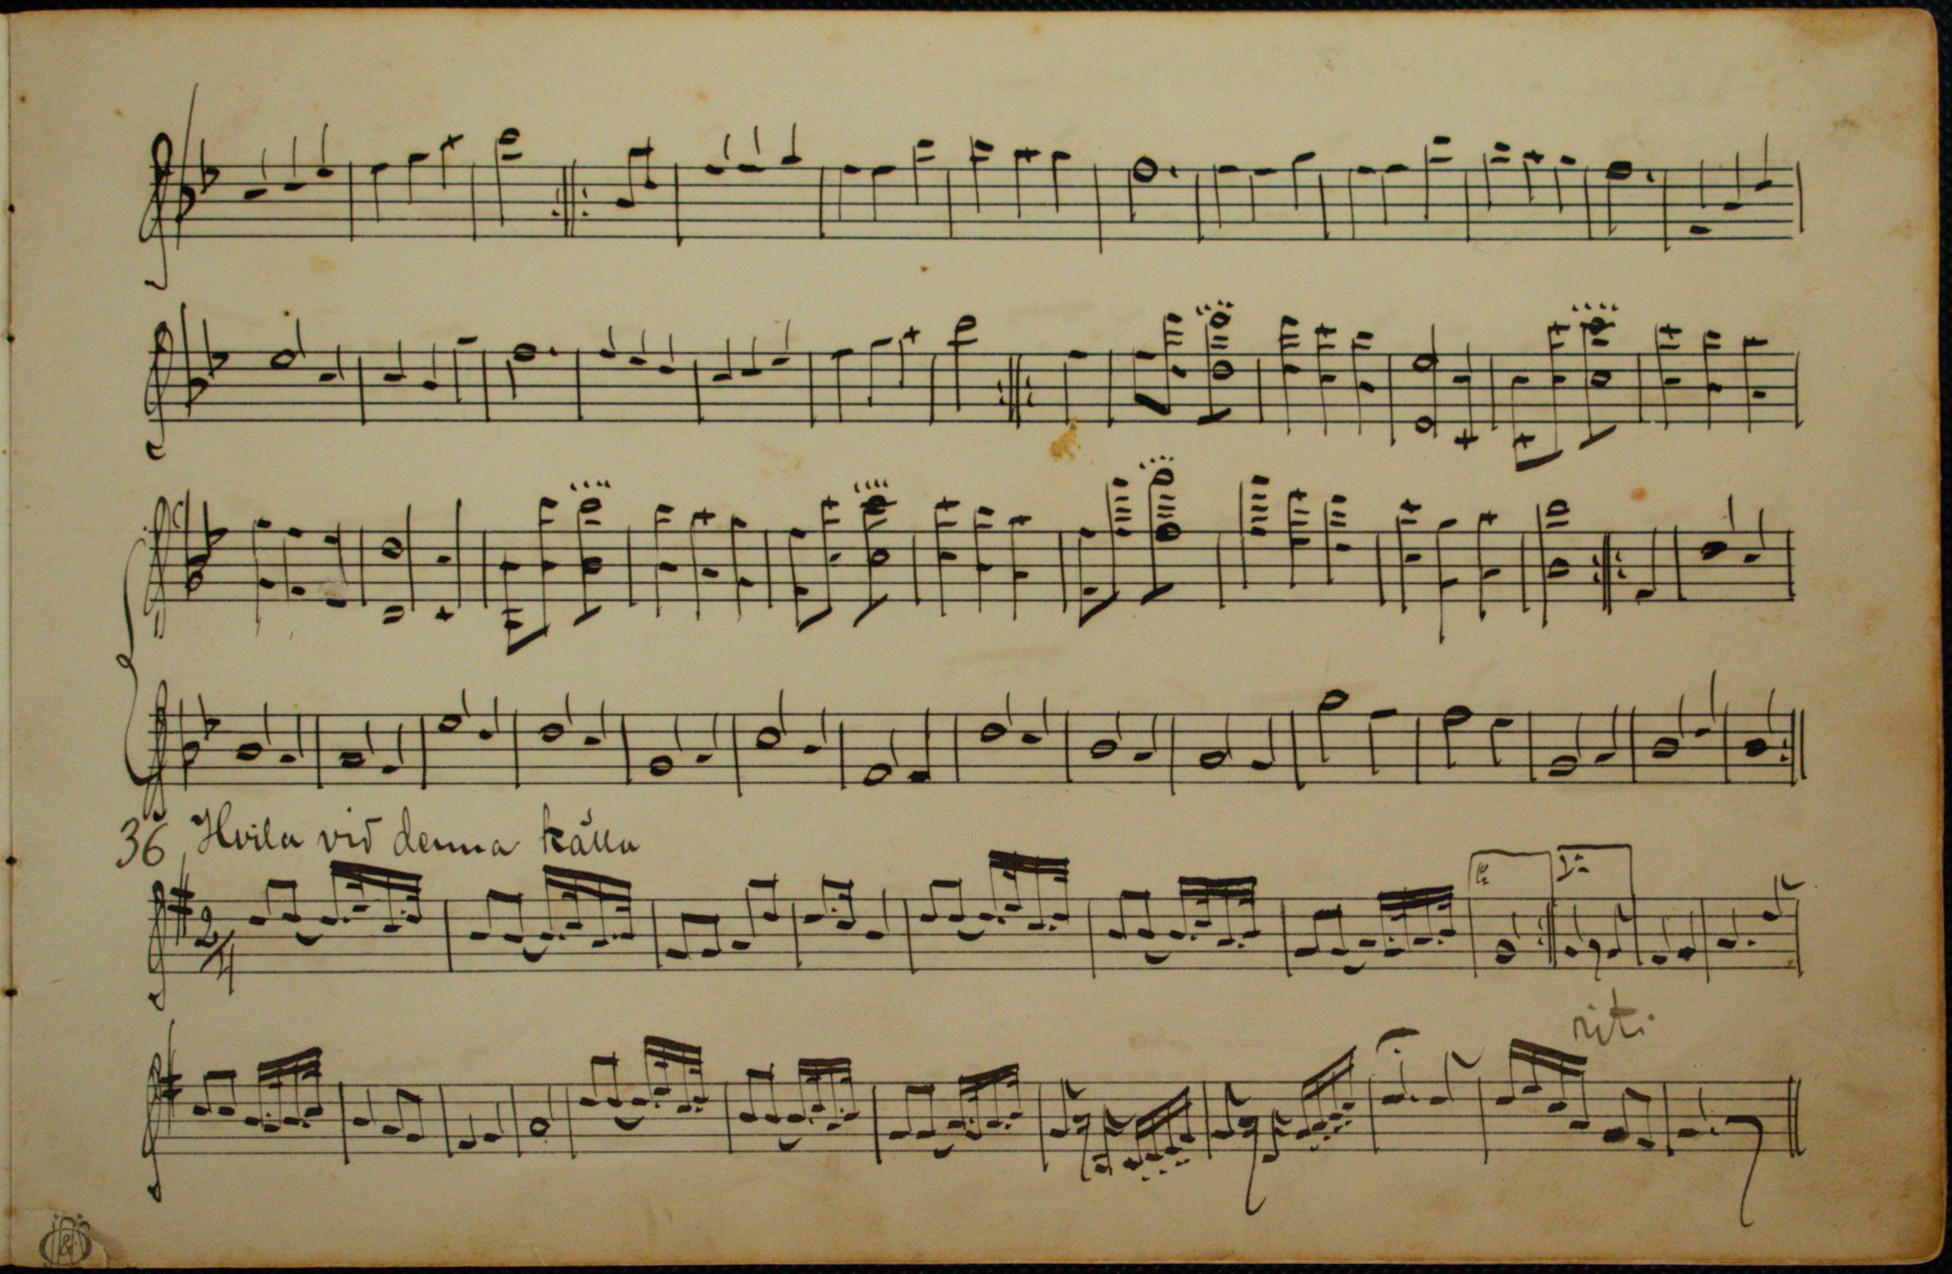 36 Hvila vid denna källa
2/4
1a
2a
rit.